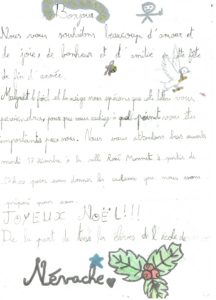 Bonjour
Nous vous souhaitons beaucoup d'amour et
de joie, de bonheur et d'amitié fête
de fin d'année.
Malgré le froid et la neige nous espérons que cette lettre vous
à quel point vous êtes
importants pour nous. Nous vous attendons
mardi 17 décembre à la salle à partir de
pour vous donner le cadeau que nous avons
préparé pour vous.
JOYEUX NOËL!!!
De la part de tous les élèves de l'école de
Névache